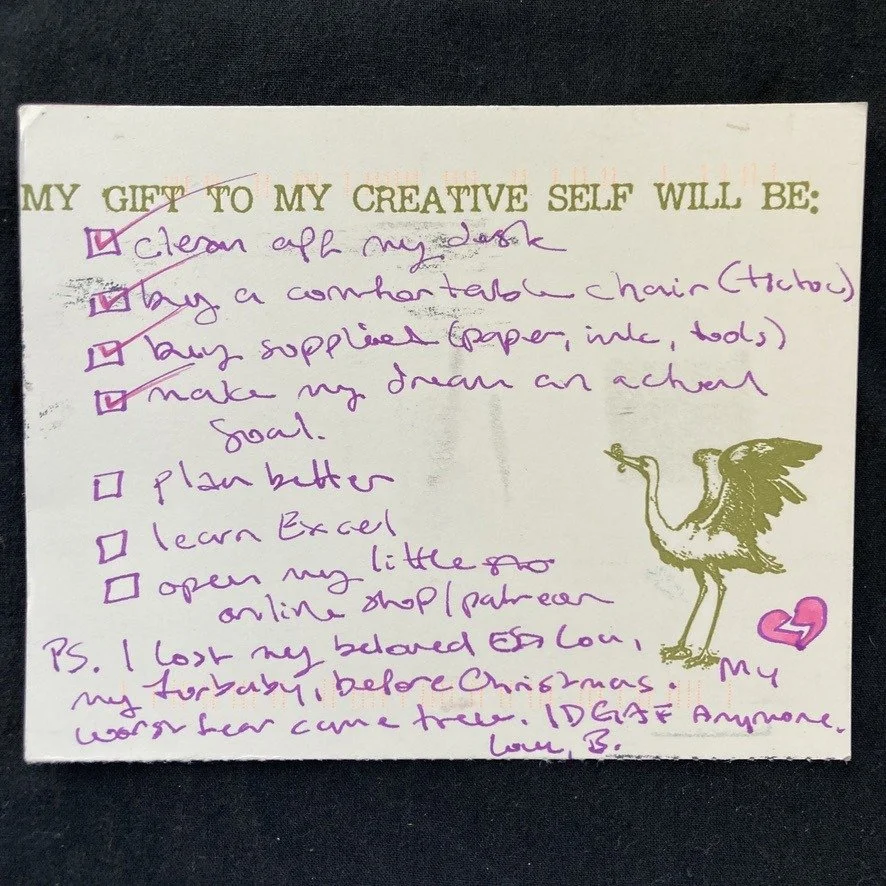 MY GIFT TO MY CREATIVE SELF WILL BE:
clean off my desk
buy a comfortable chair (tictoc)
buy supplies (paper, ink, tools)
make my dream an actual
goal.
plan better
learn Excel
open my little
online shop/patreon
PS. I lost my beloved Lou,
my furbaby, before Christmas. My
worst fear came true. IDGAF Anymore.
Love, B.